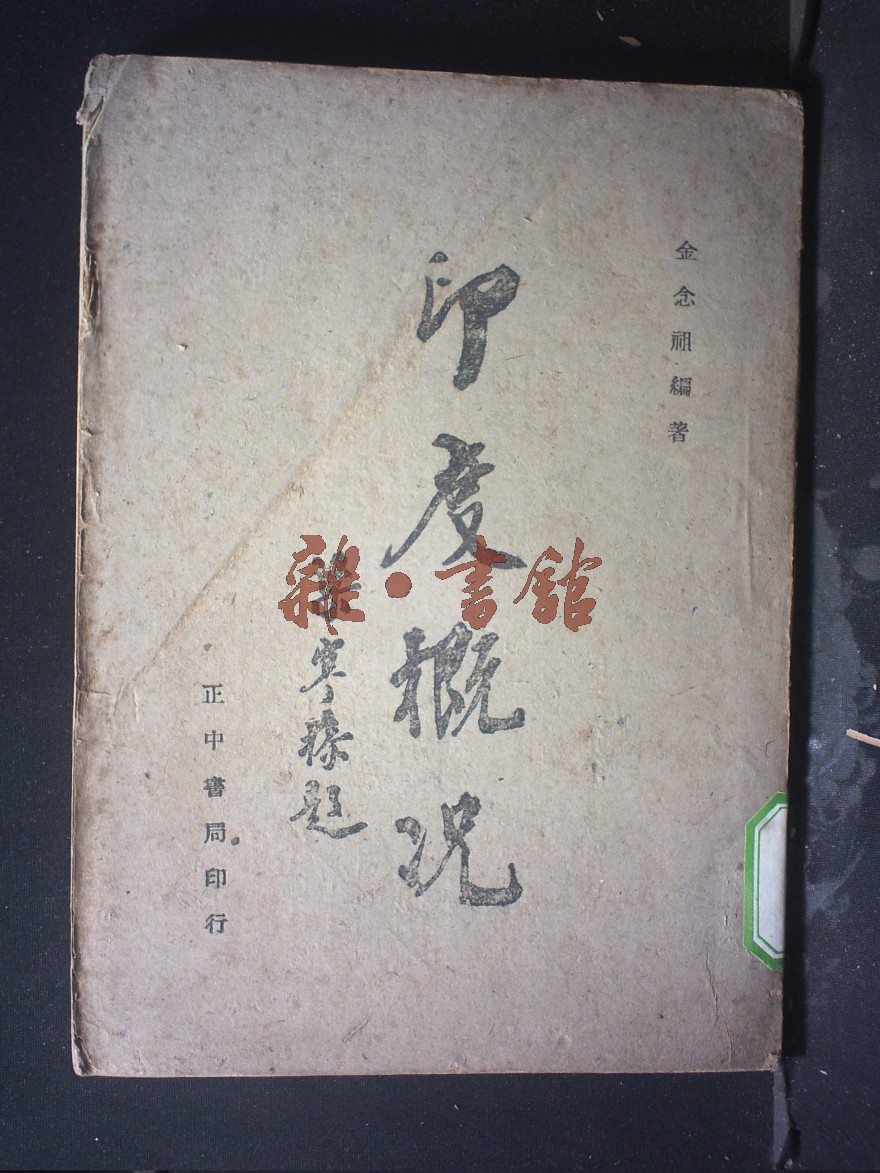 金念祖編著
印度概况
題
正中書局印行
雜·書館